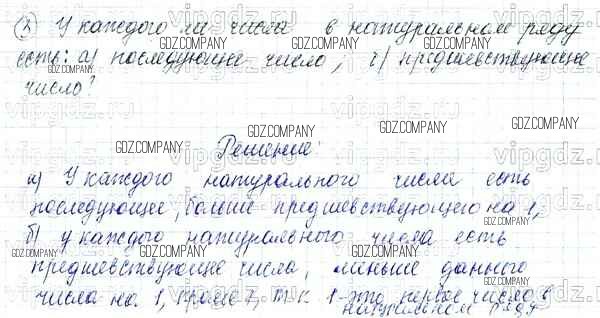 У каждого ли числа в натуральном ряду
есть: а) последующее число, б) предшевствующее
число?
Решение:
а) У каждого натурального числа есть
последующее, больше предшевствующего на 1,
б) у каждого натурального числа есть
предшевствующее число, меньше данного
числа на 1, кроме 1, т.к 1-это первое число в
натуральном ряду
GDZ.COMPANY
vipgdz.ru